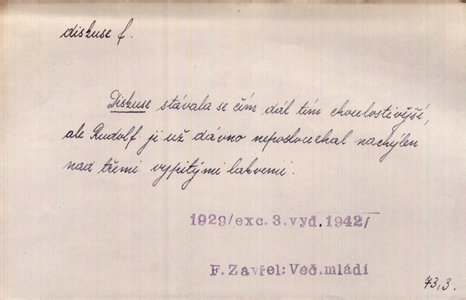 diskuse f.
Diskuse stávala se čím dál tím choulostivější,
ale Rudolf ji už dávno neposlouchal nachýlen
nad třemi vypitými lahvemi.
1929/exc.3.vyd.1942/
F.Zavřel:Več.mládí
73,3.